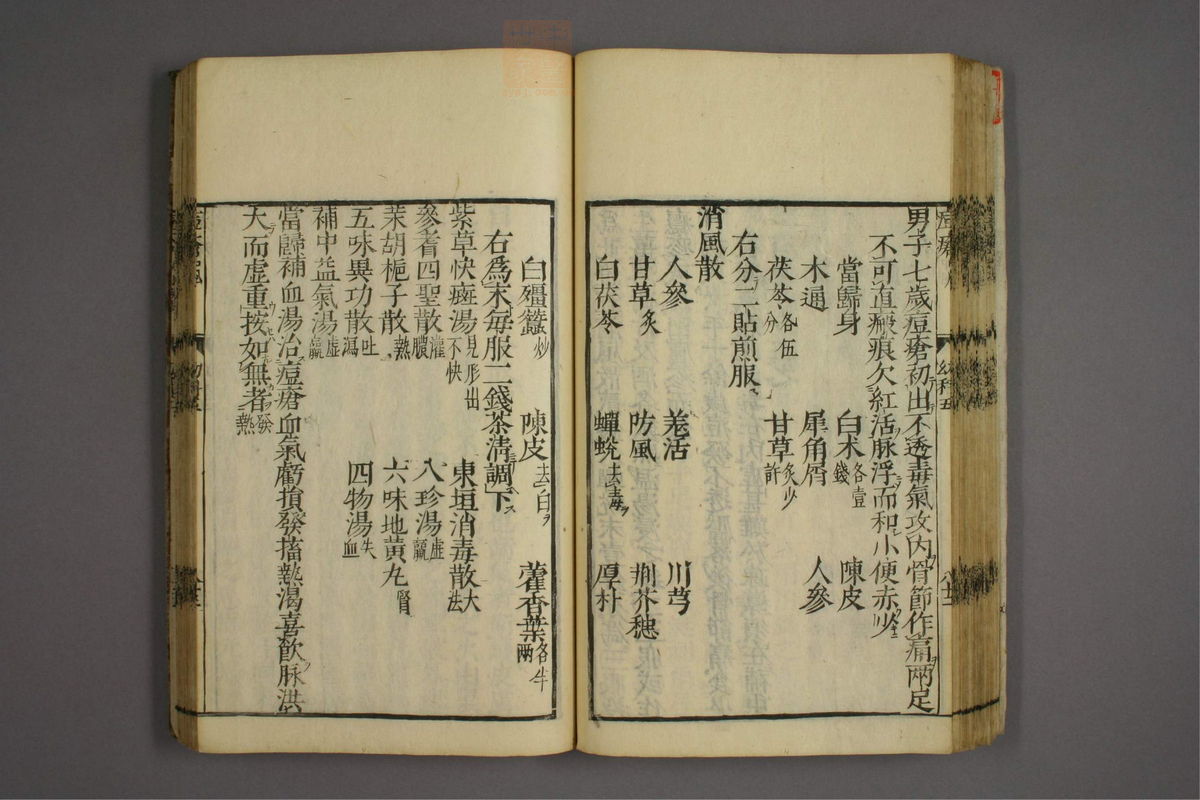 男子七歳痘瘡初出不透毒氣攻内骨節作痛兩足
不可直瘢痕欠紅活脉浮而和小便赤少
當歸身 白朮各壹錢 陳皮
木通 犀角屑 人參
茯苓各伍分 甘草炙少許
右分二貼煎服
消風散
人參 羗活 川芎
甘草炙 防風 荆芥穂
白茯苓 蟬蛻去毒 厚朴
白殭蠶炒 陳皮去白 藿香葉各半兩
右爲末毎服二錢茶清調下
紫草快癍湯見形出不快 東垣消毒散大法
參耆四聖散灌膿 八珍湯虚羸
茉胡梔子散熱 六味地黄丸腎
五味異功散吐瀉 四物湯失血
補中益氣湯虚羸
當歸補血湯治痘瘡血氣虧損發搐熱渴喜飲脉洪
大而虚重按如無者發熱
幼科五